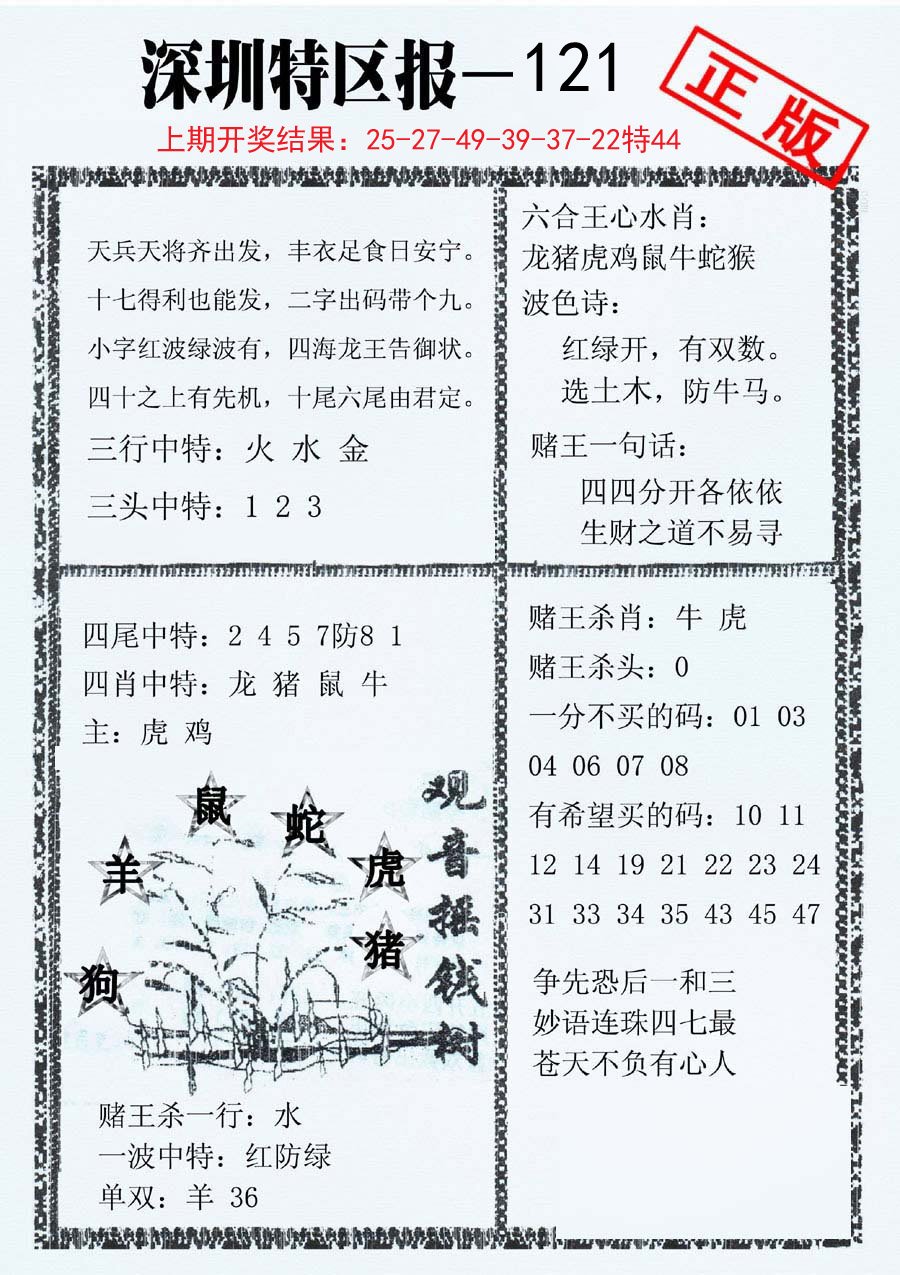 深圳特区报—121
正版
上期开奖结果：25-27-49-39-37-22特44
天兵天将齐出发，丰衣足食日安宁。
十七得利也能发，二字出码带个九。
小字红波绿波有，四海龙王告御状。
四十之上有先机，十尾六尾由君定。
三行中特：火 水 金
三头中特：1 2 3
六合王心水肖：
龙猪虎鸡鼠牛蛇猴
波色诗：
红绿开，有双数。
选土木，防牛马。
赌王一句话：
四四分开各依依
生财之道不易寻
四尾中特：2 4 5 7防8 1
四肖中特：龙 猪 鼠 牛
主：虎 鸡
鼠
蛇
羊
虎
猪
狗
观音摇钱树
赌王杀一行：水
一波中特：红防绿
单双：羊 36
赌王杀肖：牛 虎
赌王杀头：0
一分不买的码：01 03
04 06 07 08
有希望买的码：10 11
12 14 19 21 22 23 24
31 33 34 35 43 45 47
争先恐后一和三
妙语连珠四七最
苍天不负有心人